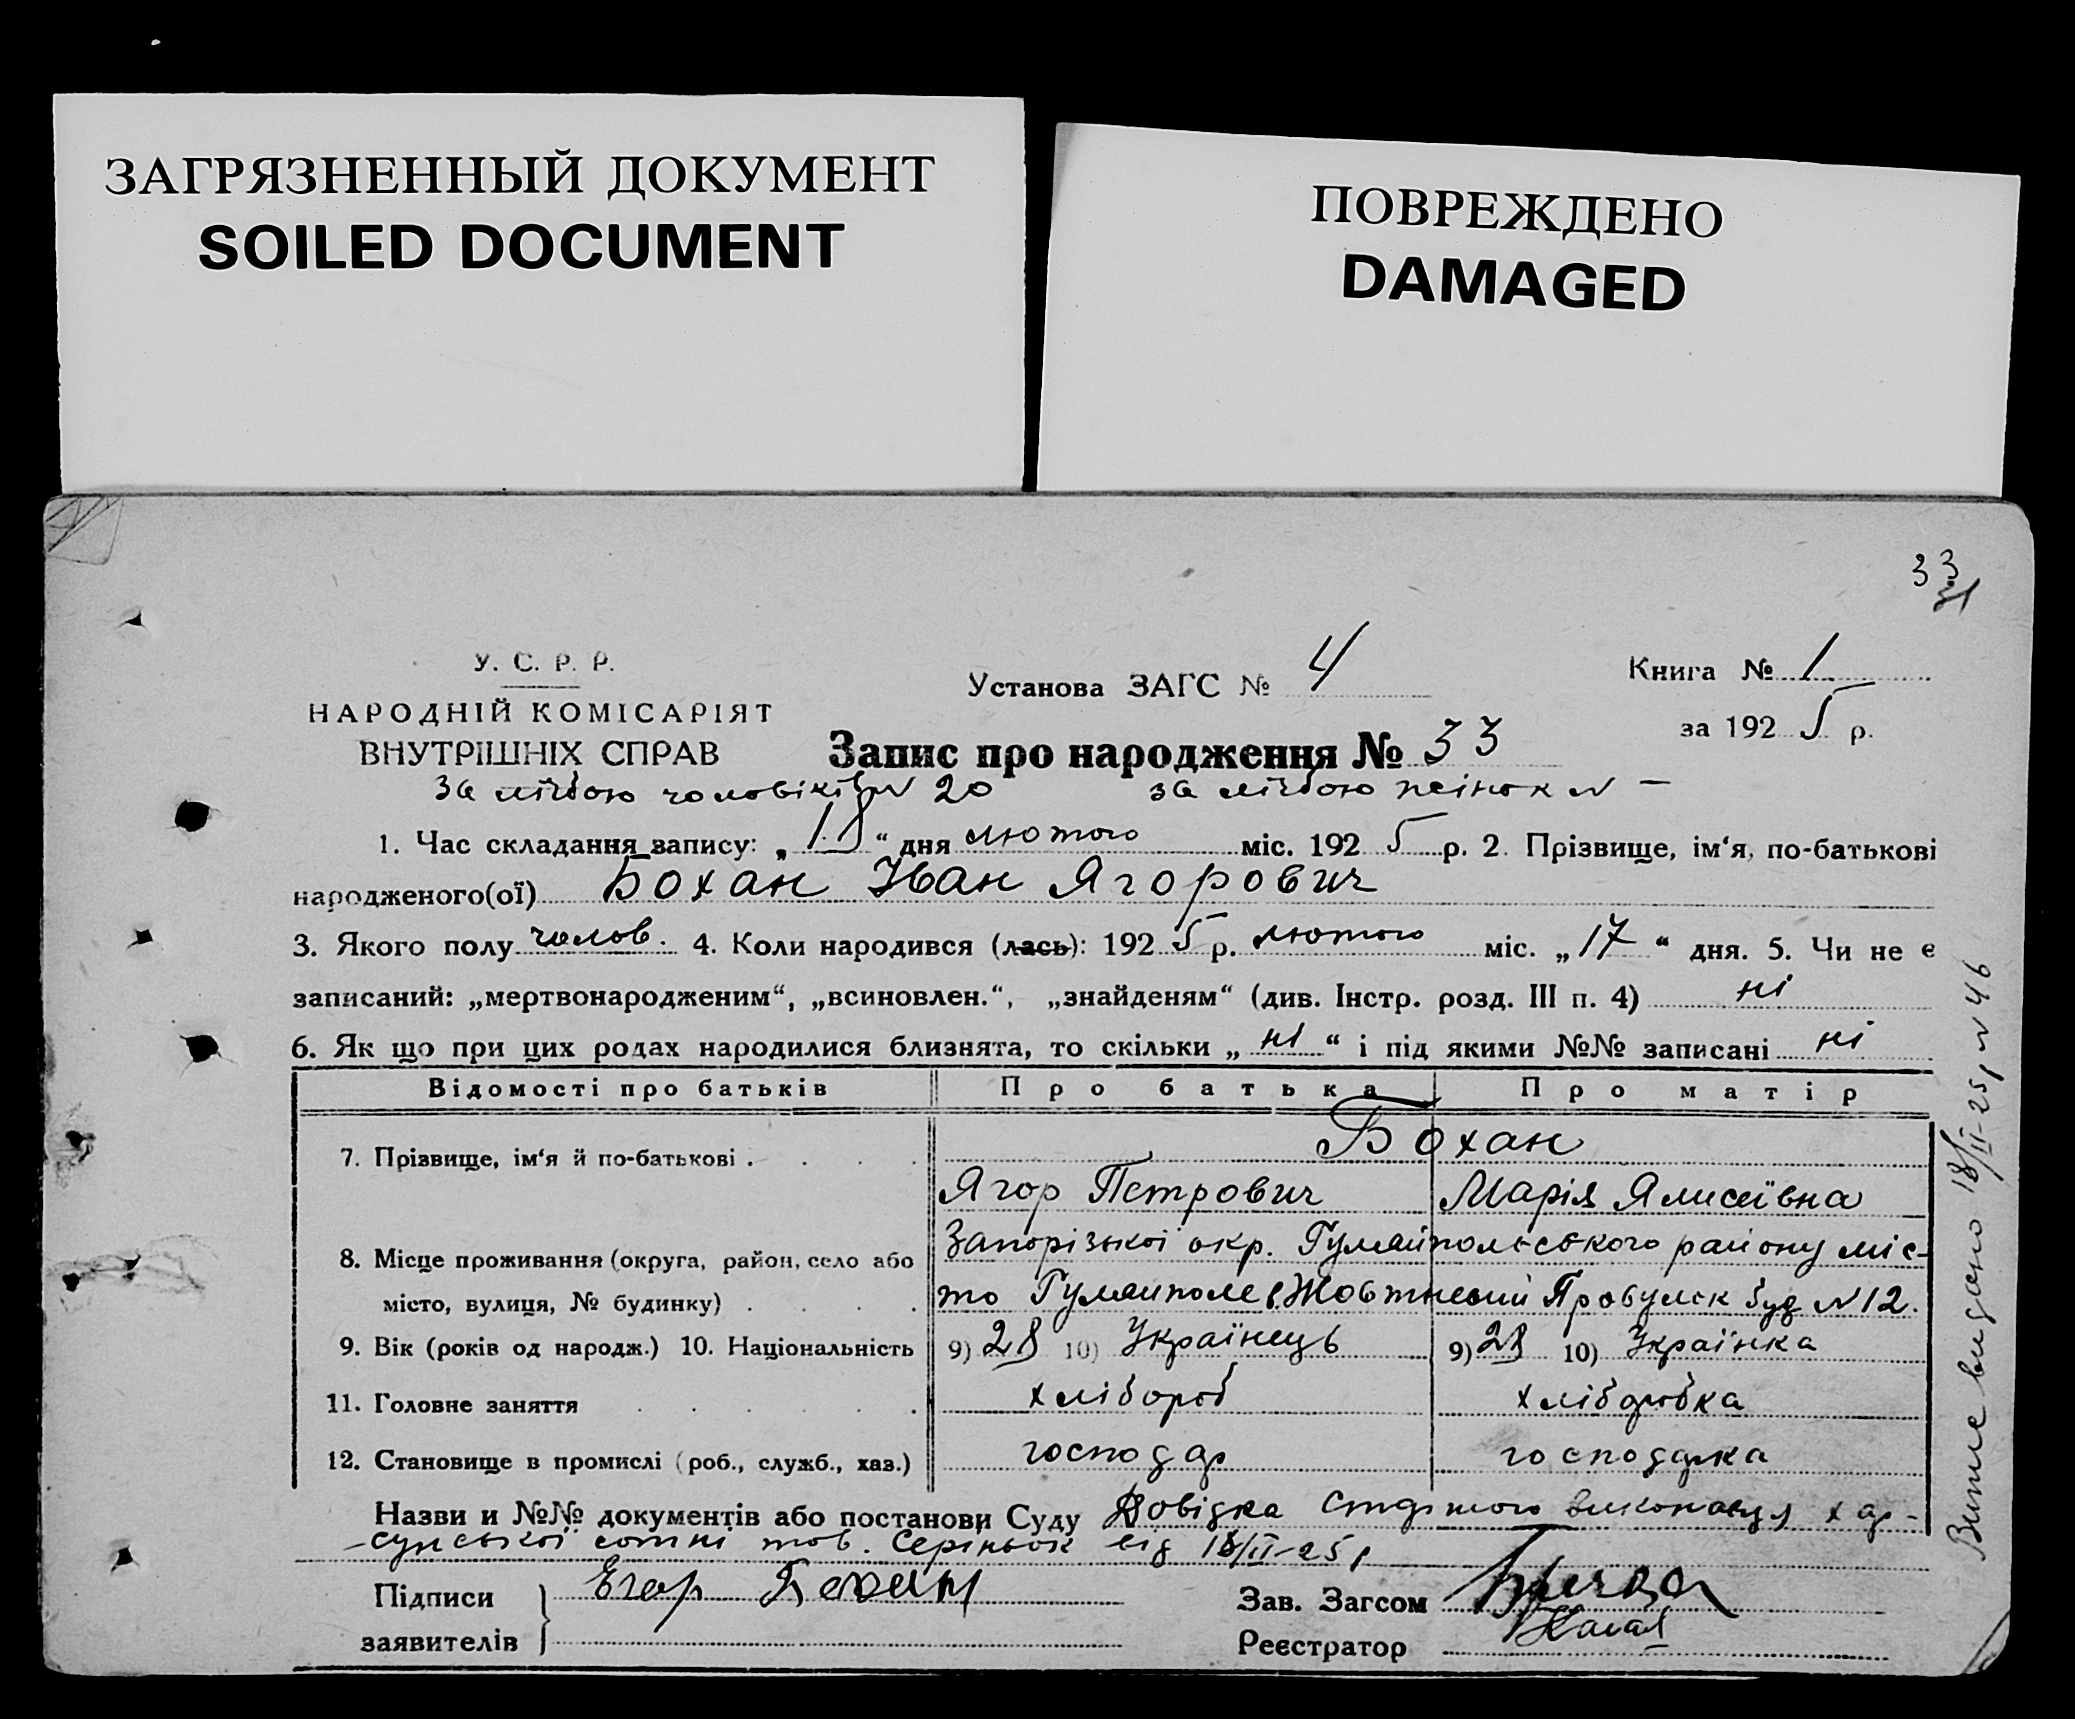 ЗАГРЯЗНЕННЫЙ ДОКУМЕНТ
SOILED DOCUMENT
ПОВРЕЖДЕНО
DAMAGED
33
У. С. Р. Р.
НАРОДНІЙ КОМІСАРІЯТ
ВНУТРІШНІХ СПРАВ
Установа ЗАГС № 4
Книга № 1
за 1925 р.
Запис про народження № 33
за лічбою чоловіків N 20 за лічбою жінок N —
1. Час складання запису: „18“ дня лютого міс. 1925 р. 2. Прізвище, ім‘я, по-батькові
народженого(ої) Бохан Іван Ягорович
3. Якого полу чолов. 4. Коли народився (лась): 1925 р. лютого міс. „17“ дня. 5. Чи не є
записаний: „мертвонародженим“, „всиновлен.“, „знайденям“ (див. Інстр. розд. III п. 4) ні
6. Як що при цих родах народилися близнята, то скільки „ні“ і під якими №№ записані ні
Відомості про батьків Про батька Про матір
7. Прізвище, ім‘я й по-батькові . . . . Бохан
Ягор Петрович Марія Ялисеївна
8. Місце проживання (округа, район, село або Запорізької окр. Гуляйпольського району міс-
місто, вулиця, № будинку) . . . . то Гуляйполе Жовтневий Провулок буд N 12.
9. Вік (років од народж.) 10. Національність 9) 28 10) Українець 9) 28 10) Українка
11. Головне заняття . . . . . хлібороб хліборобка
12. Становище в промислі (роб., служб., хаз.) господар господарка
Назви и №№ документів або постанови Суду Довідка виконавця хар-
-сунської сотні тов. від 18/II-25 р
Підписи Егор Бохан
заявителів
Зав. Загсом
Реєстратор
видано 18/II-25 р N 46